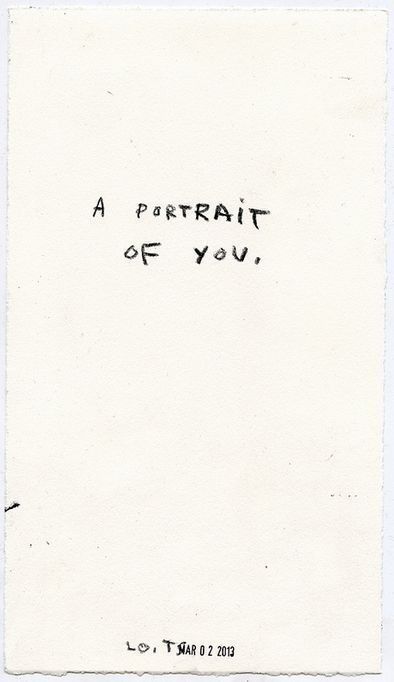 A PORTRAiT
OF YOU.
LO. T MAR 0 2 2013